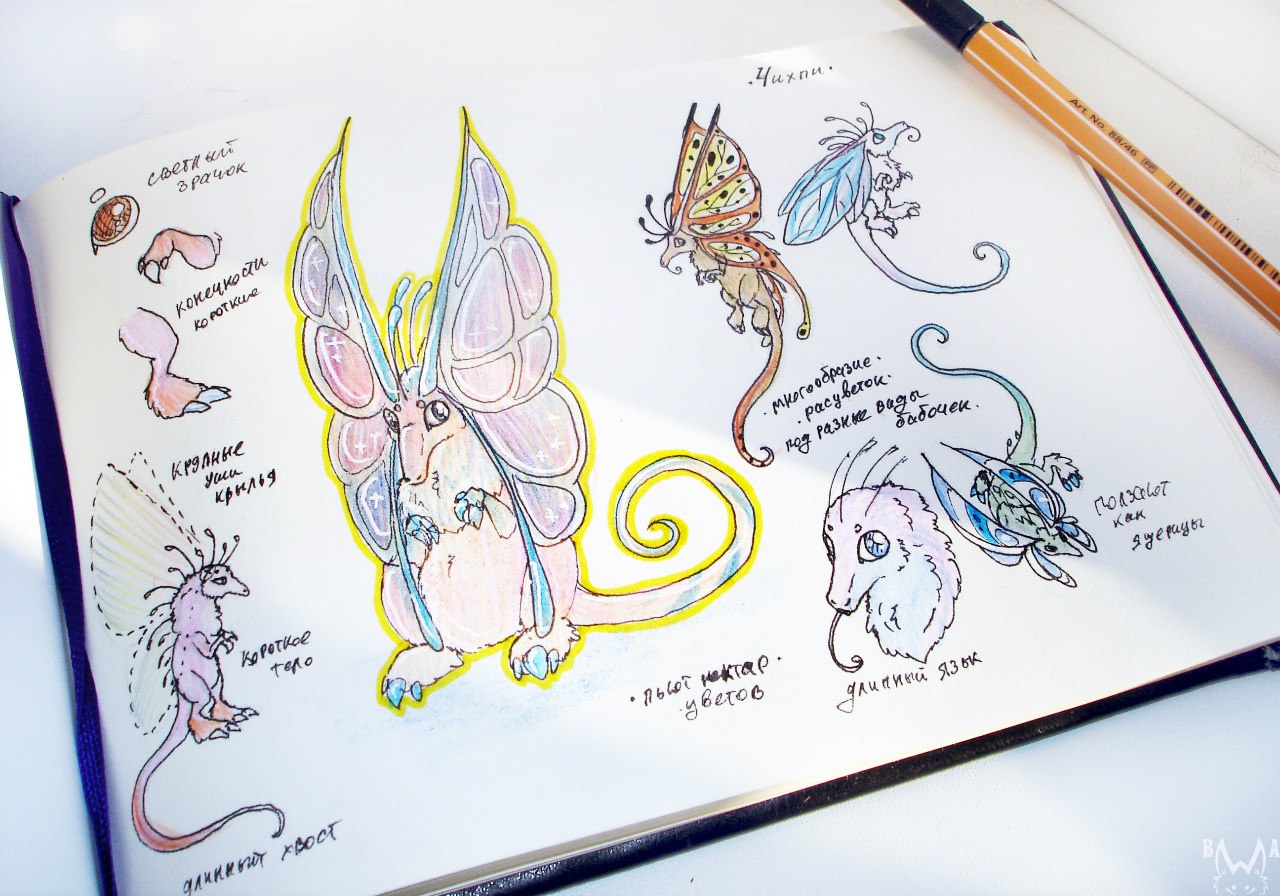 .Чихпи.
светлый
зрачок
конечности
короткие
крупные
уши
крылья
короткое
тело
длинный хвост
.многообразие.
.расцветок.
под разные виды
бабочек.
ползают
как
ящерицы
.пьют нектар.
.цветов
длинный язык
Art. No. 88/46
B W A